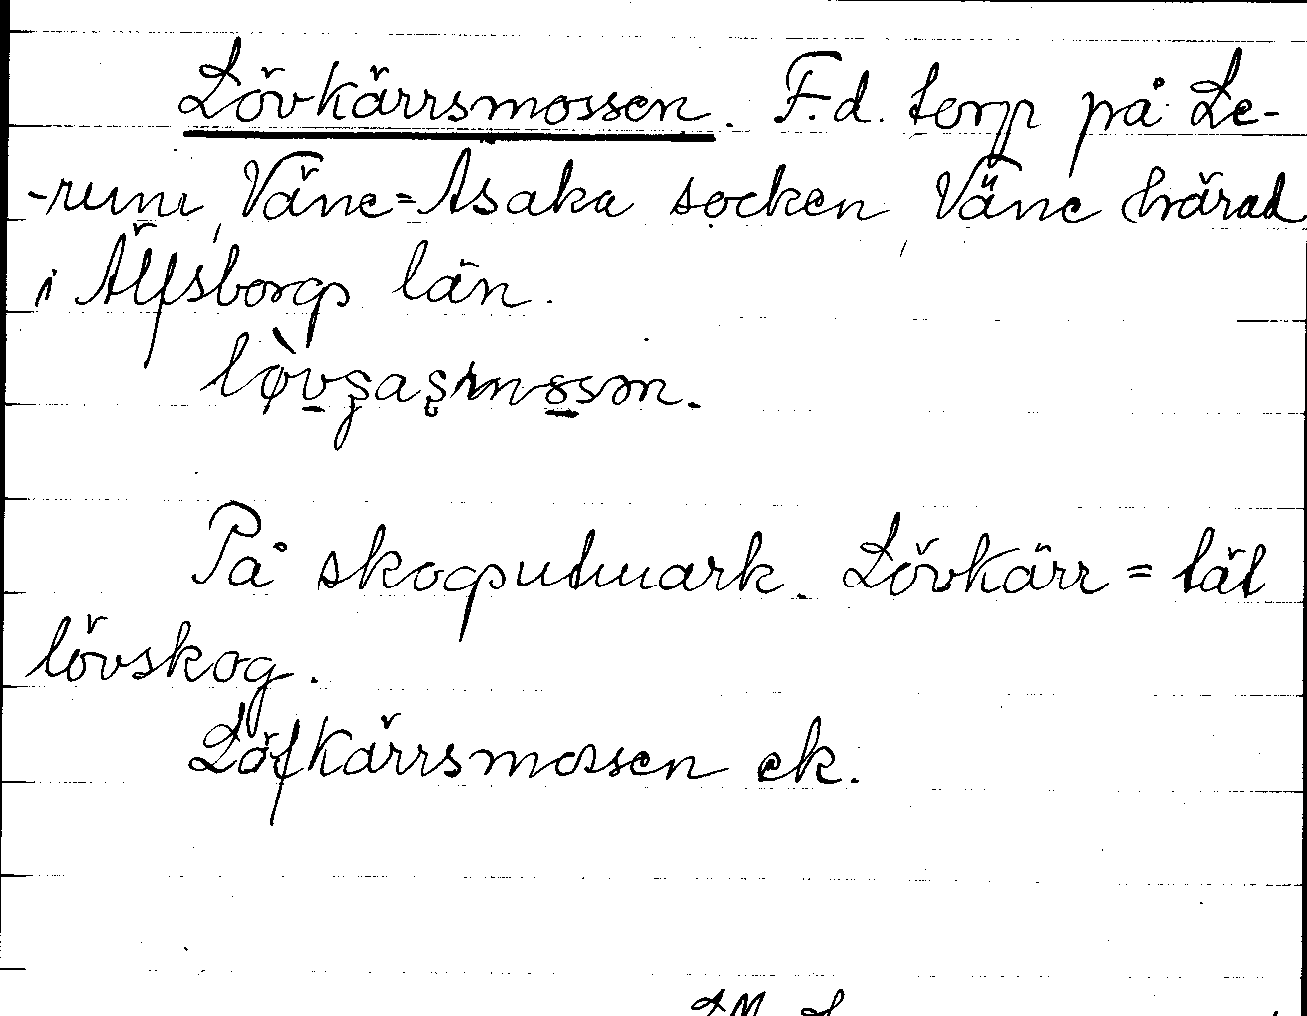 Lövkärrsmossen. F.d. torp på Le-
-rum, Väne=Åsaka socken, Väne härad
i Älfsborgs län.
På skogsutmark. Lövkärr = tät
lövskog.
Löfkärrsmossen ek.